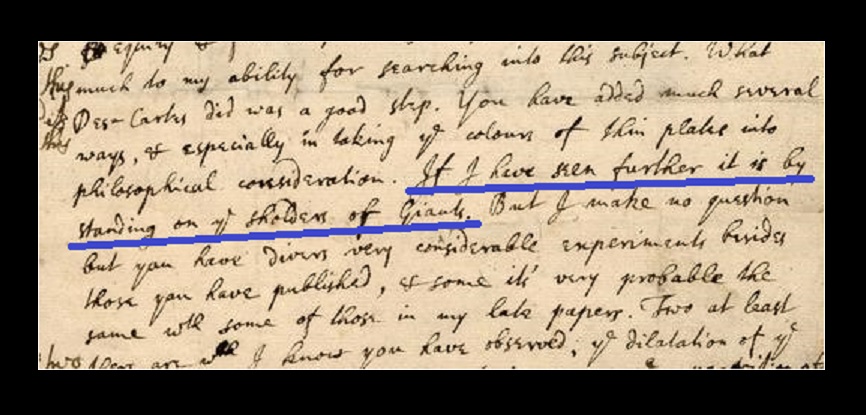 much to my ability for searching into this subject. What
Des-Cartes did was a good step. You have added much several
ways, & especially in taking yᵉ colours of thin plates into
philosophical consideration. If I have seen further it is by
standing on yᵉ sholders of Giants. But I make no question
but you have divers very considerable experiments besides
those you have published, & some it's very probable the
same wth some of those in my late papers. Two at least
there are wch I know you have observed; yᵉ dilatation of yᵉ